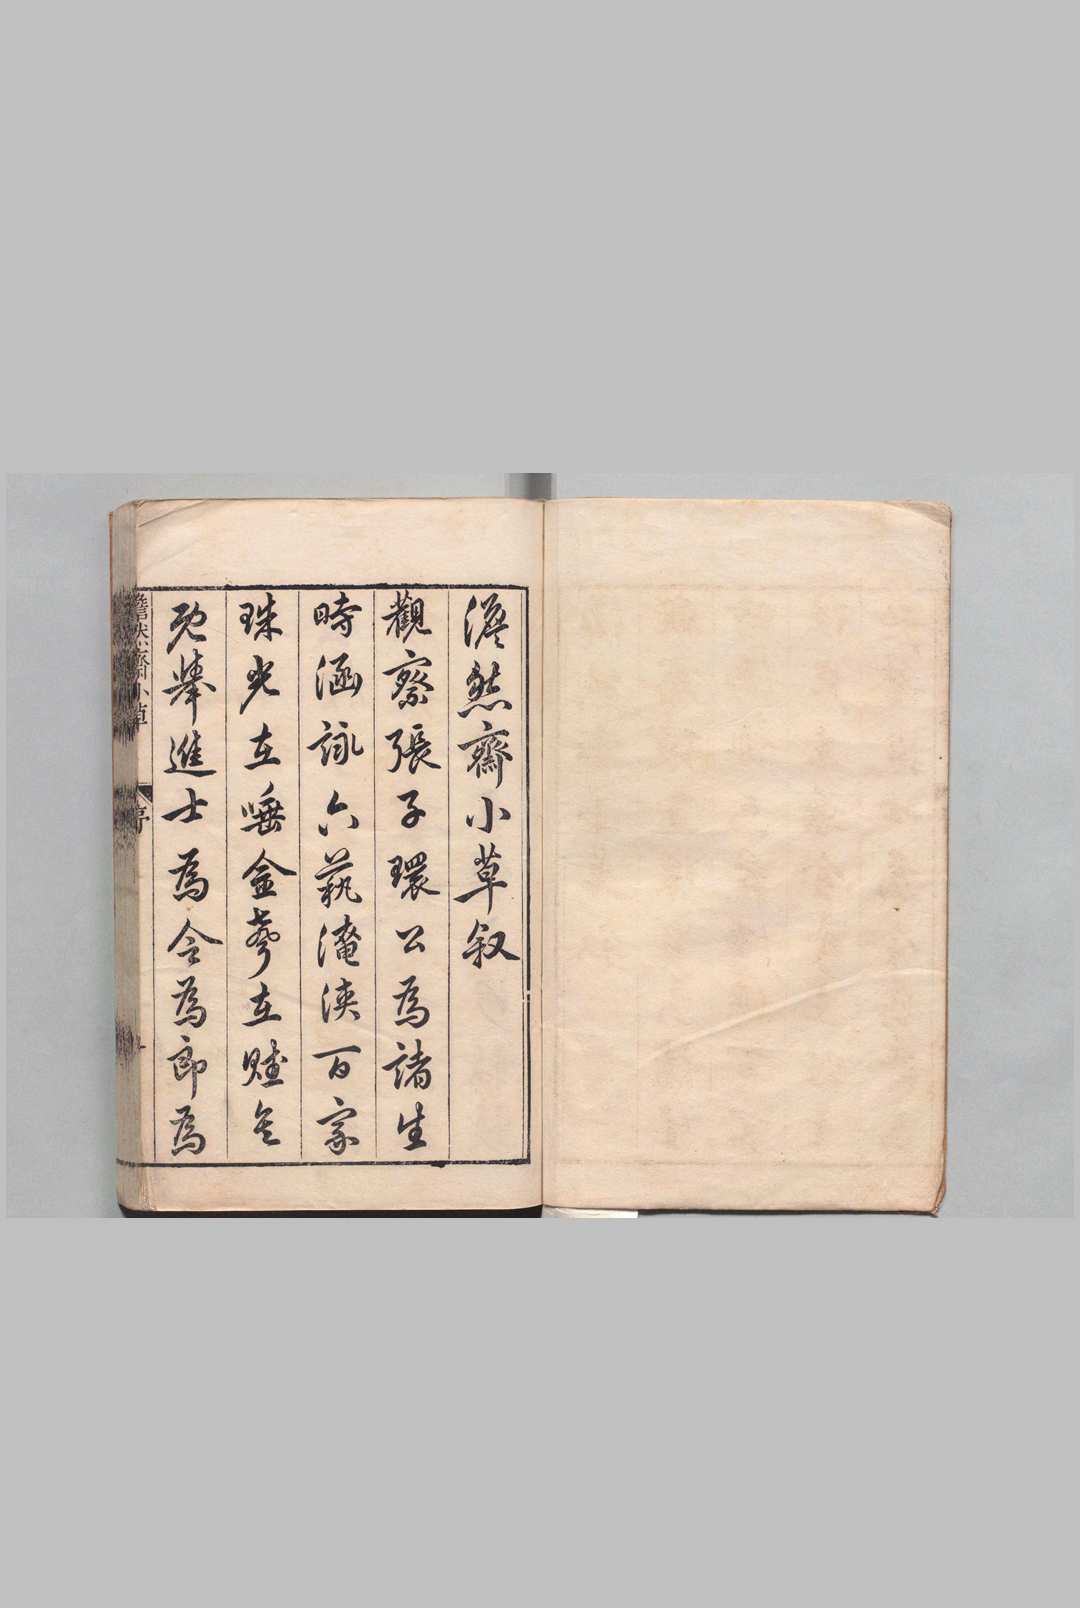 澹然齋小草叙
觀察張子環公為諸生
時涵詠六藝淹浹百家
珠光在唾金聲在賦矣
既舉進士為令為郎為
澹然齋小草
序